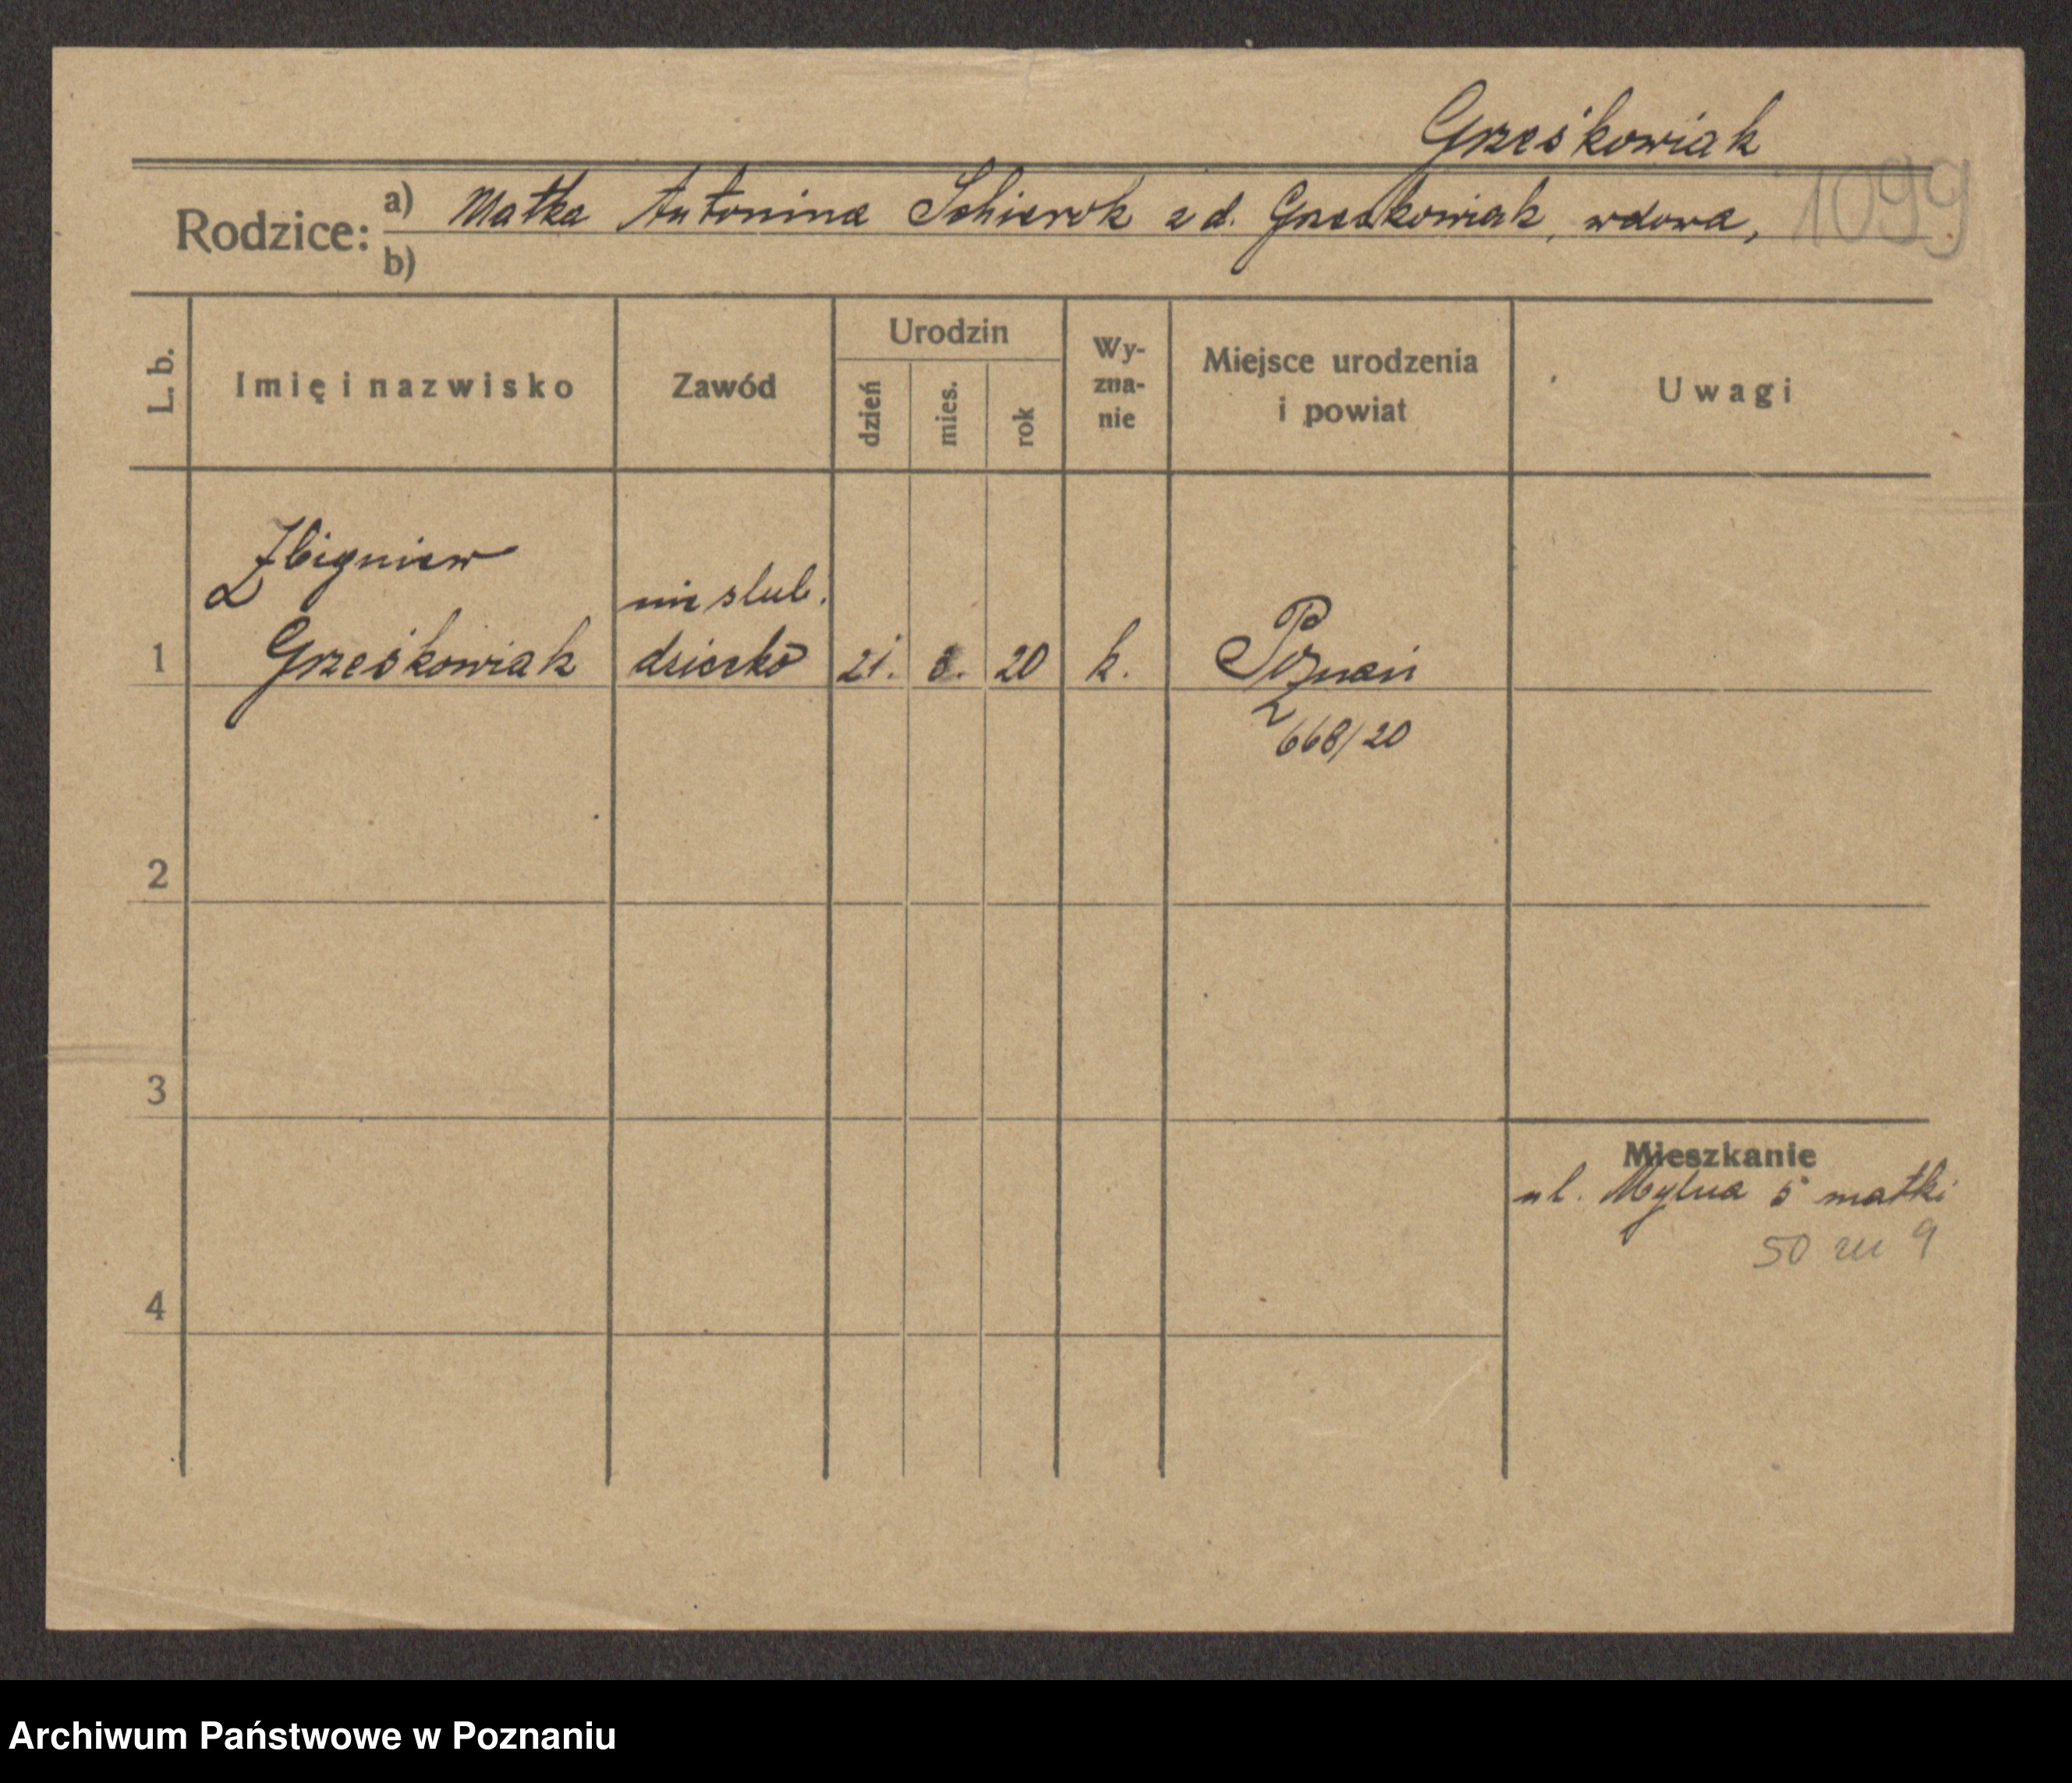 Grześkowiak
Rodzice: a) Matka Antonina Schierok z d. Grześkowiak, wdowa, 1099
b)
L. b. Imię i nazwisko Zawód Urodzin dzień mies. rok Wy-zna-nie Miejsce urodzenia i powiat Uwagi
Zbigniew nieślub.
1 Grześkowiak dziecko 21. 8. 20 k. Poznań
668/20
2
3
Mieszkanie
ul. Mylna 5 matki
50 m 9
4
Archiwum Państwowe w Poznaniu